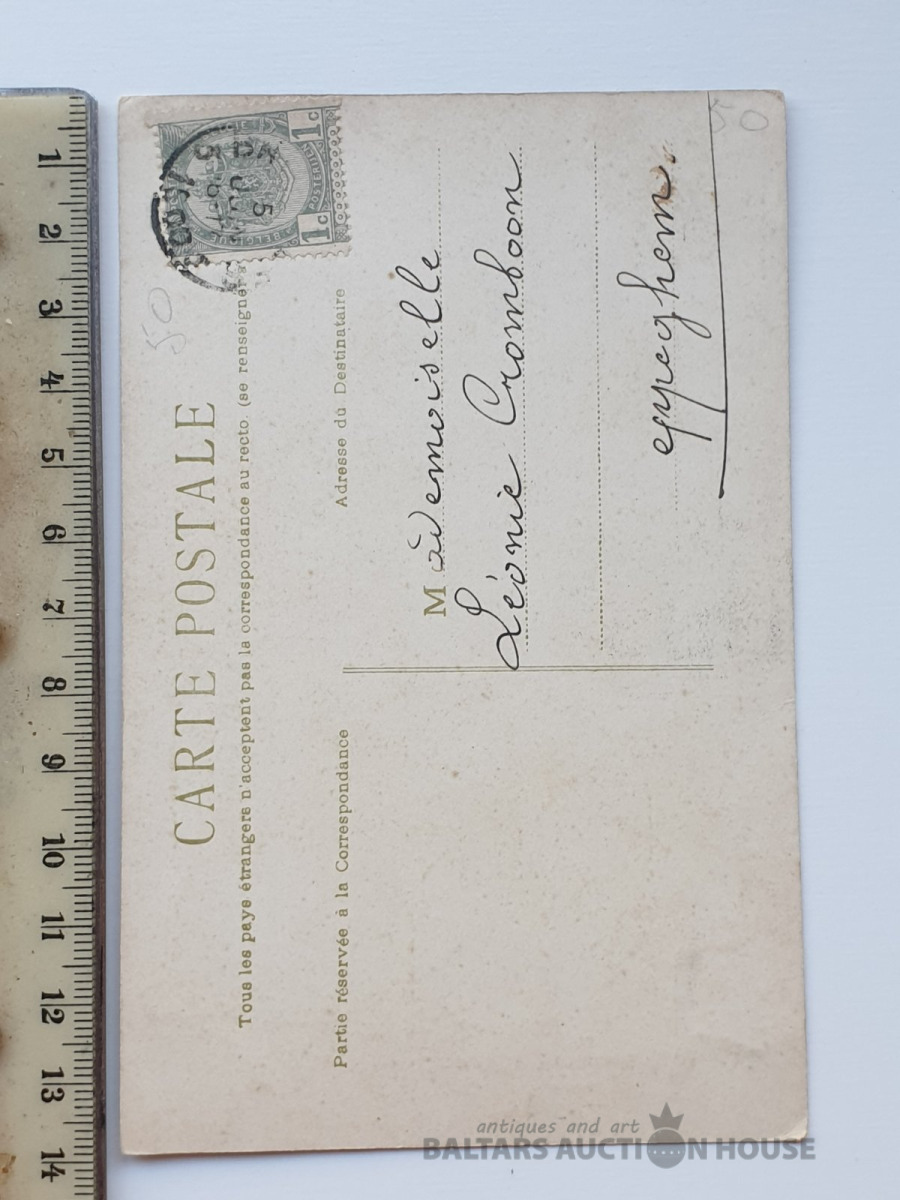 CARTE POSTALE
Tous les pays étrangers n'acceptent pas la correspondance au recto. (se renseigner
Partie réservée à la Correspondance
Adresse du Destinataire
1c 1c
POSTERIJEN
BELGIQUE
5
50
Mademoiselle
Léonie Cromboon
eppeghem.
50
1
2
3
4
5
6
7
8
9
10
11
12
13
14
antiques and art
BALTARS AUCTION HOUSE